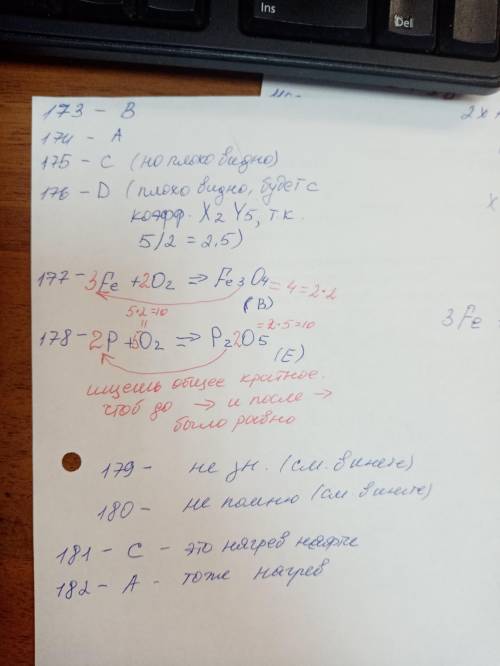 Ins
Del
173 - B
2x
174 - A
175 - C (но плохо видно)
176 - D (плохо видно, будет с
коэфф. X₂Y₅, т.к.
5/2 = 2.5)
177 - 3Fe + 2O₂ => Fe₃O₄ = 4 = 2·2
(B)
5·2=10
3Fe
178 - 2P + 5O₂ => P₂2O₅ = 2·5=10
(E)
ищешь общее кратное.
чтоб до → и после →
было равно
179 - не зн. (см. в инете)
180 - не помню (см. в инете)
181 - C - это нагрев
182 - A - тоже нагрев